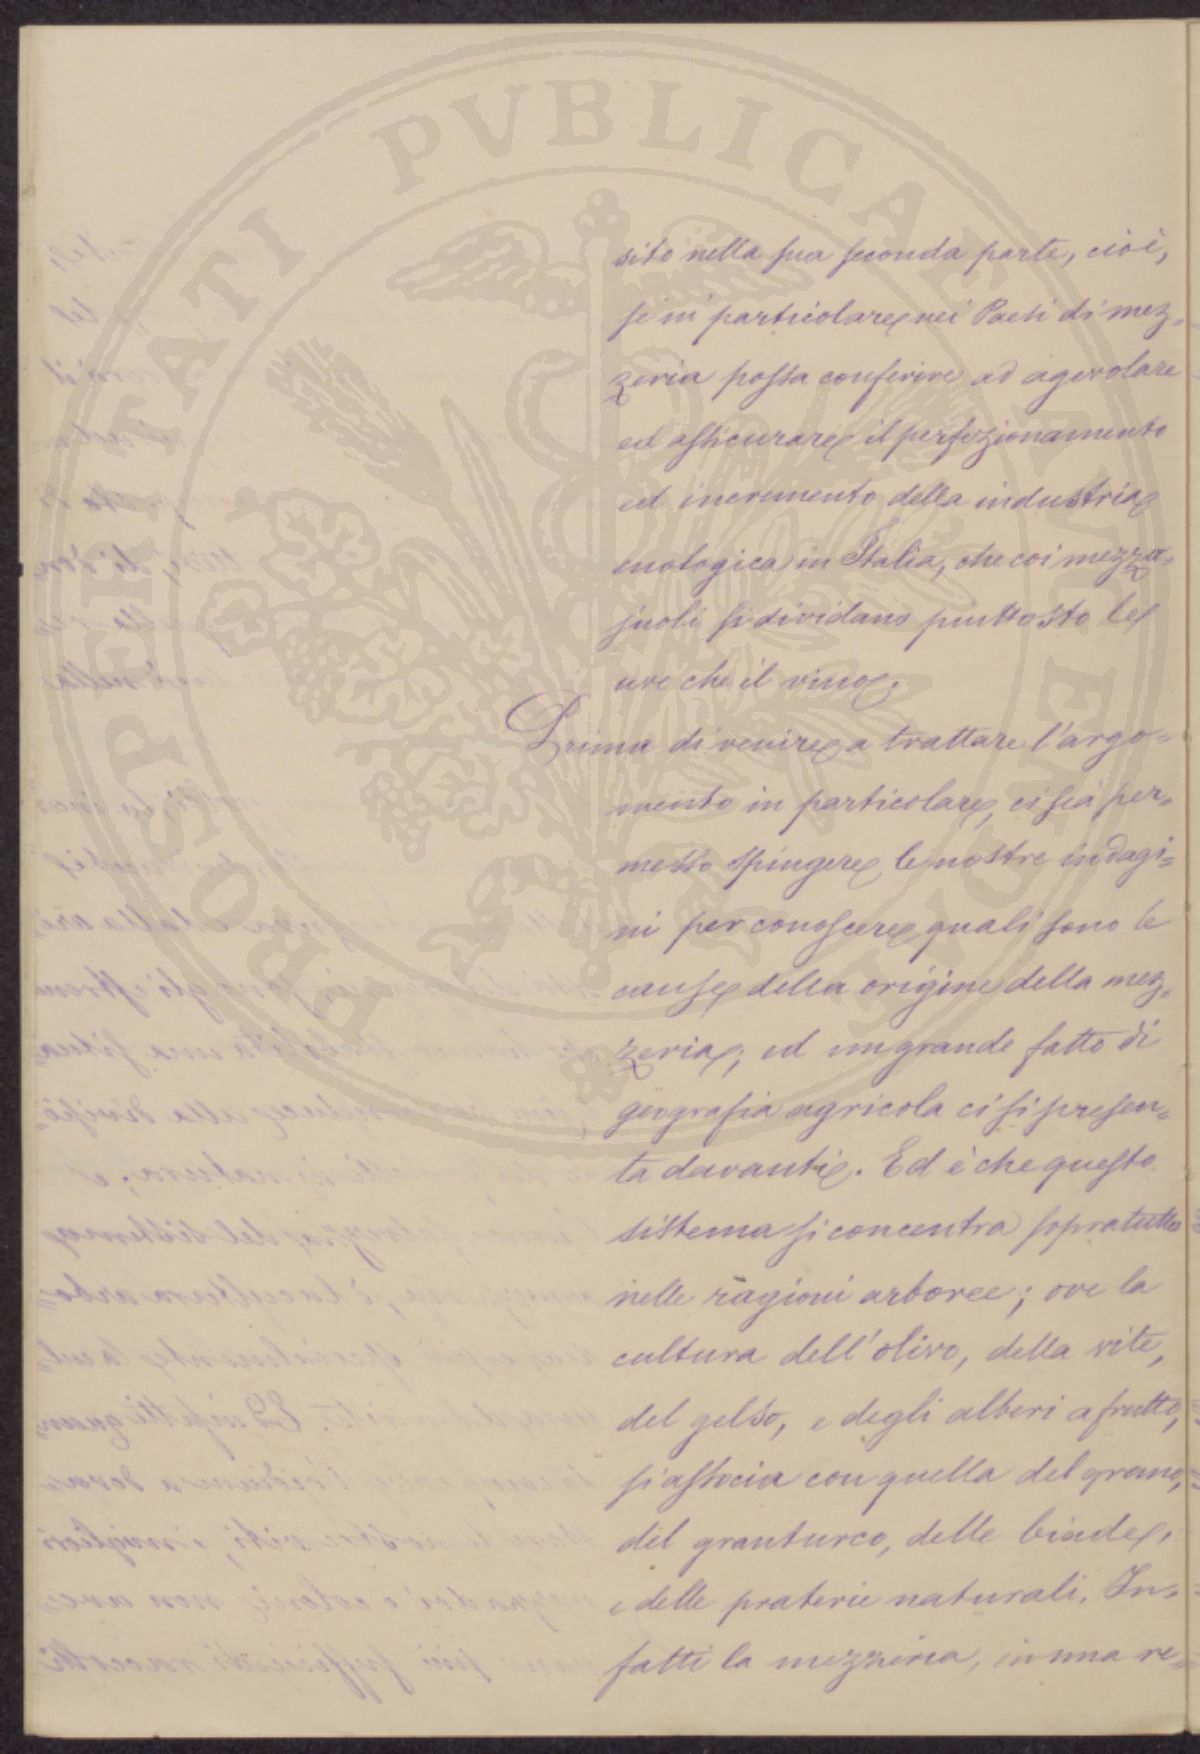 PROSPERITATI PVBLICAE AVGENDAE
sito nella sua seconda parte, cioè,
se in particolare nei Paesi di mez=
zeria possa conferire ad agevolare
ed assicurare il perfezionamento
ed incremento della industria
enologica in Italia, che coi mezza=
juoli si dividano piuttosto le
uve che il vino.
Prima di venire a trattare l'argo=
mento in particolare, ci sia per=
messo spingere le nostre indagi=
ni per conoscere quali sono le
cause della origine della mez=
zeria; ed un grande fatto di
geografia agricola ci si presen=
ta davanti. Ed è che questo
sistema si concentra sopratutto
nelle ragioni arboree; ove la
cultura dell'olivo, della vite,
del gelso, e degli alberi a frutto,
si associa con quella del grano,
del granturco, delle biade,
e delle praterie naturali. In=
fatti la mezzeria, in una re=